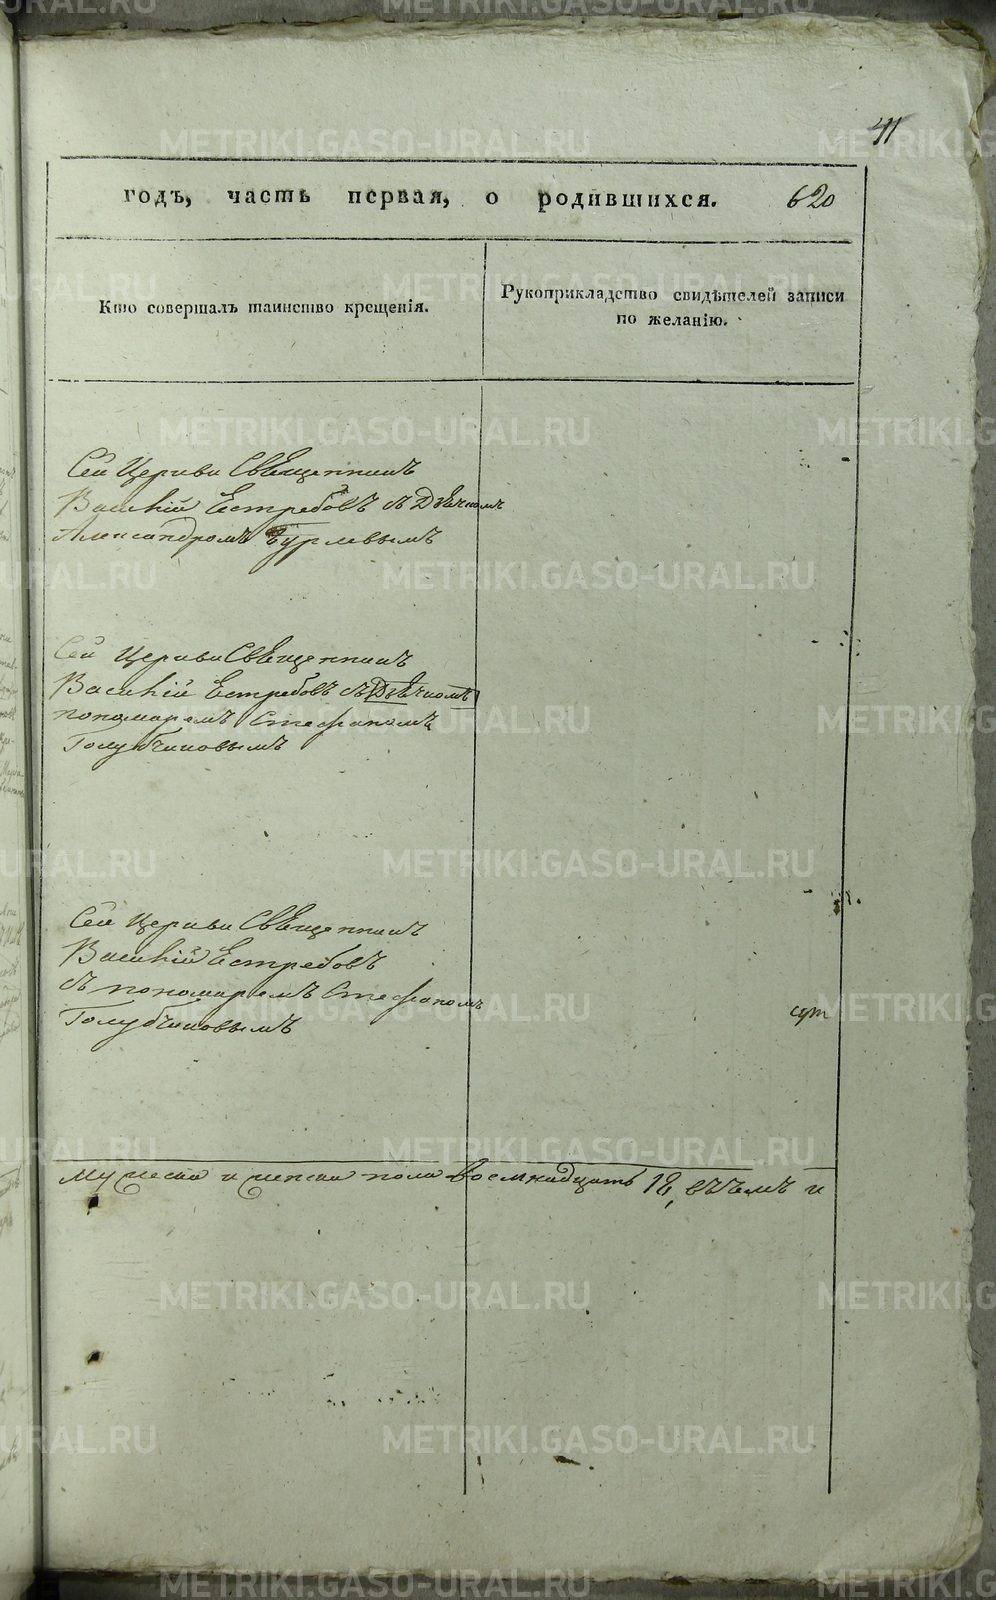 41
годъ, часть первая, о родившихся. 620
Кто совершалъ таинство крещенія.
Рукоприкладство свидѣтелей записи
по желанію.
Сей Церкви Священникъ
Василій Ястребовъ съ Дьячкомъ
Александромъ Бурлевымъ
Сей Церкви Священникъ
Василій Ястребовъ съ Дьячкомъ
пономаремъ Стефаномъ
Голубчиковымъ
Сей Церкви Священникъ
Василій Ястребовъ
съ пономаремъ Стефаномъ
Голубчиковымъ
сут
мужеска и женска пола восемнадцать 18, въ чемъ и
METRIKI.GASO-URAL.RU